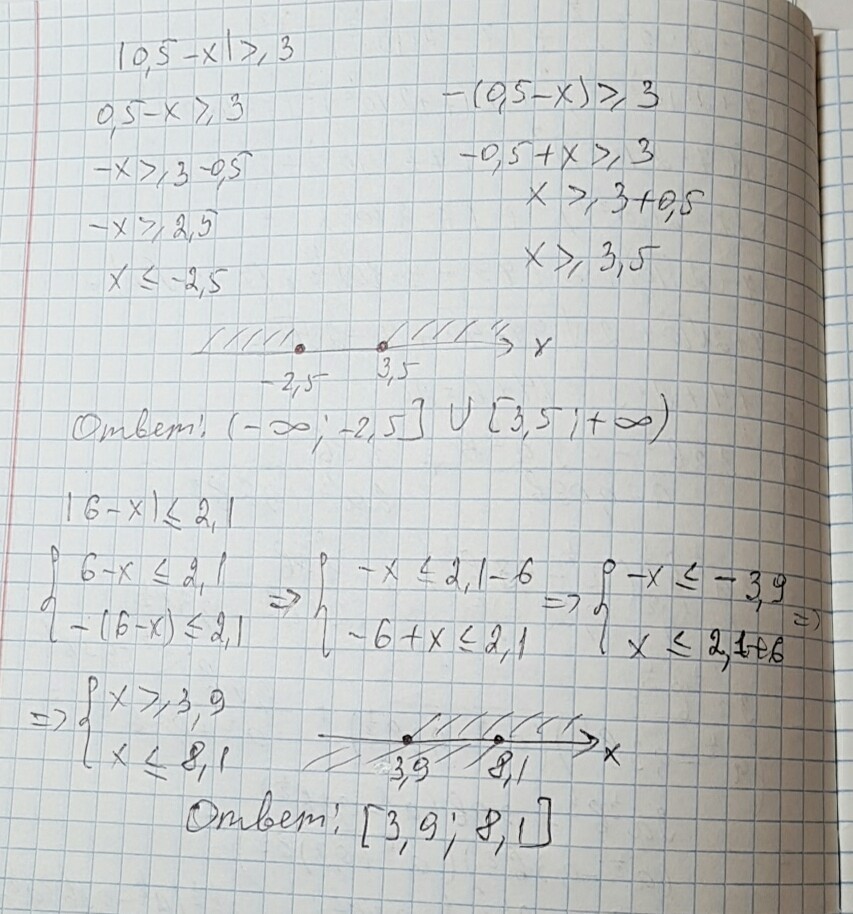 |0,5-x|⩾3
0,5-x⩾3
-x⩾3-0,5
-x⩾2,5
x≤-2,5
-(0,5-x)⩾3
-0,5+x⩾3
x⩾3+0,5
x⩾3,5
-2,5 3,5 x
Ответ: (-∞; -2,5] ∪ [3,5; +∞)
|6-x|≤2,1
{ 6-x≤2,1 => { -x≤2,1-6 => { -x≤-3,9 =>
-(6-x)≤2,1 -6+x≤2,1 x≤2,1+6
=> { x⩾3,9
x≤8,1
3,9 8,1 x
Ответ: [3,9; 8,1]